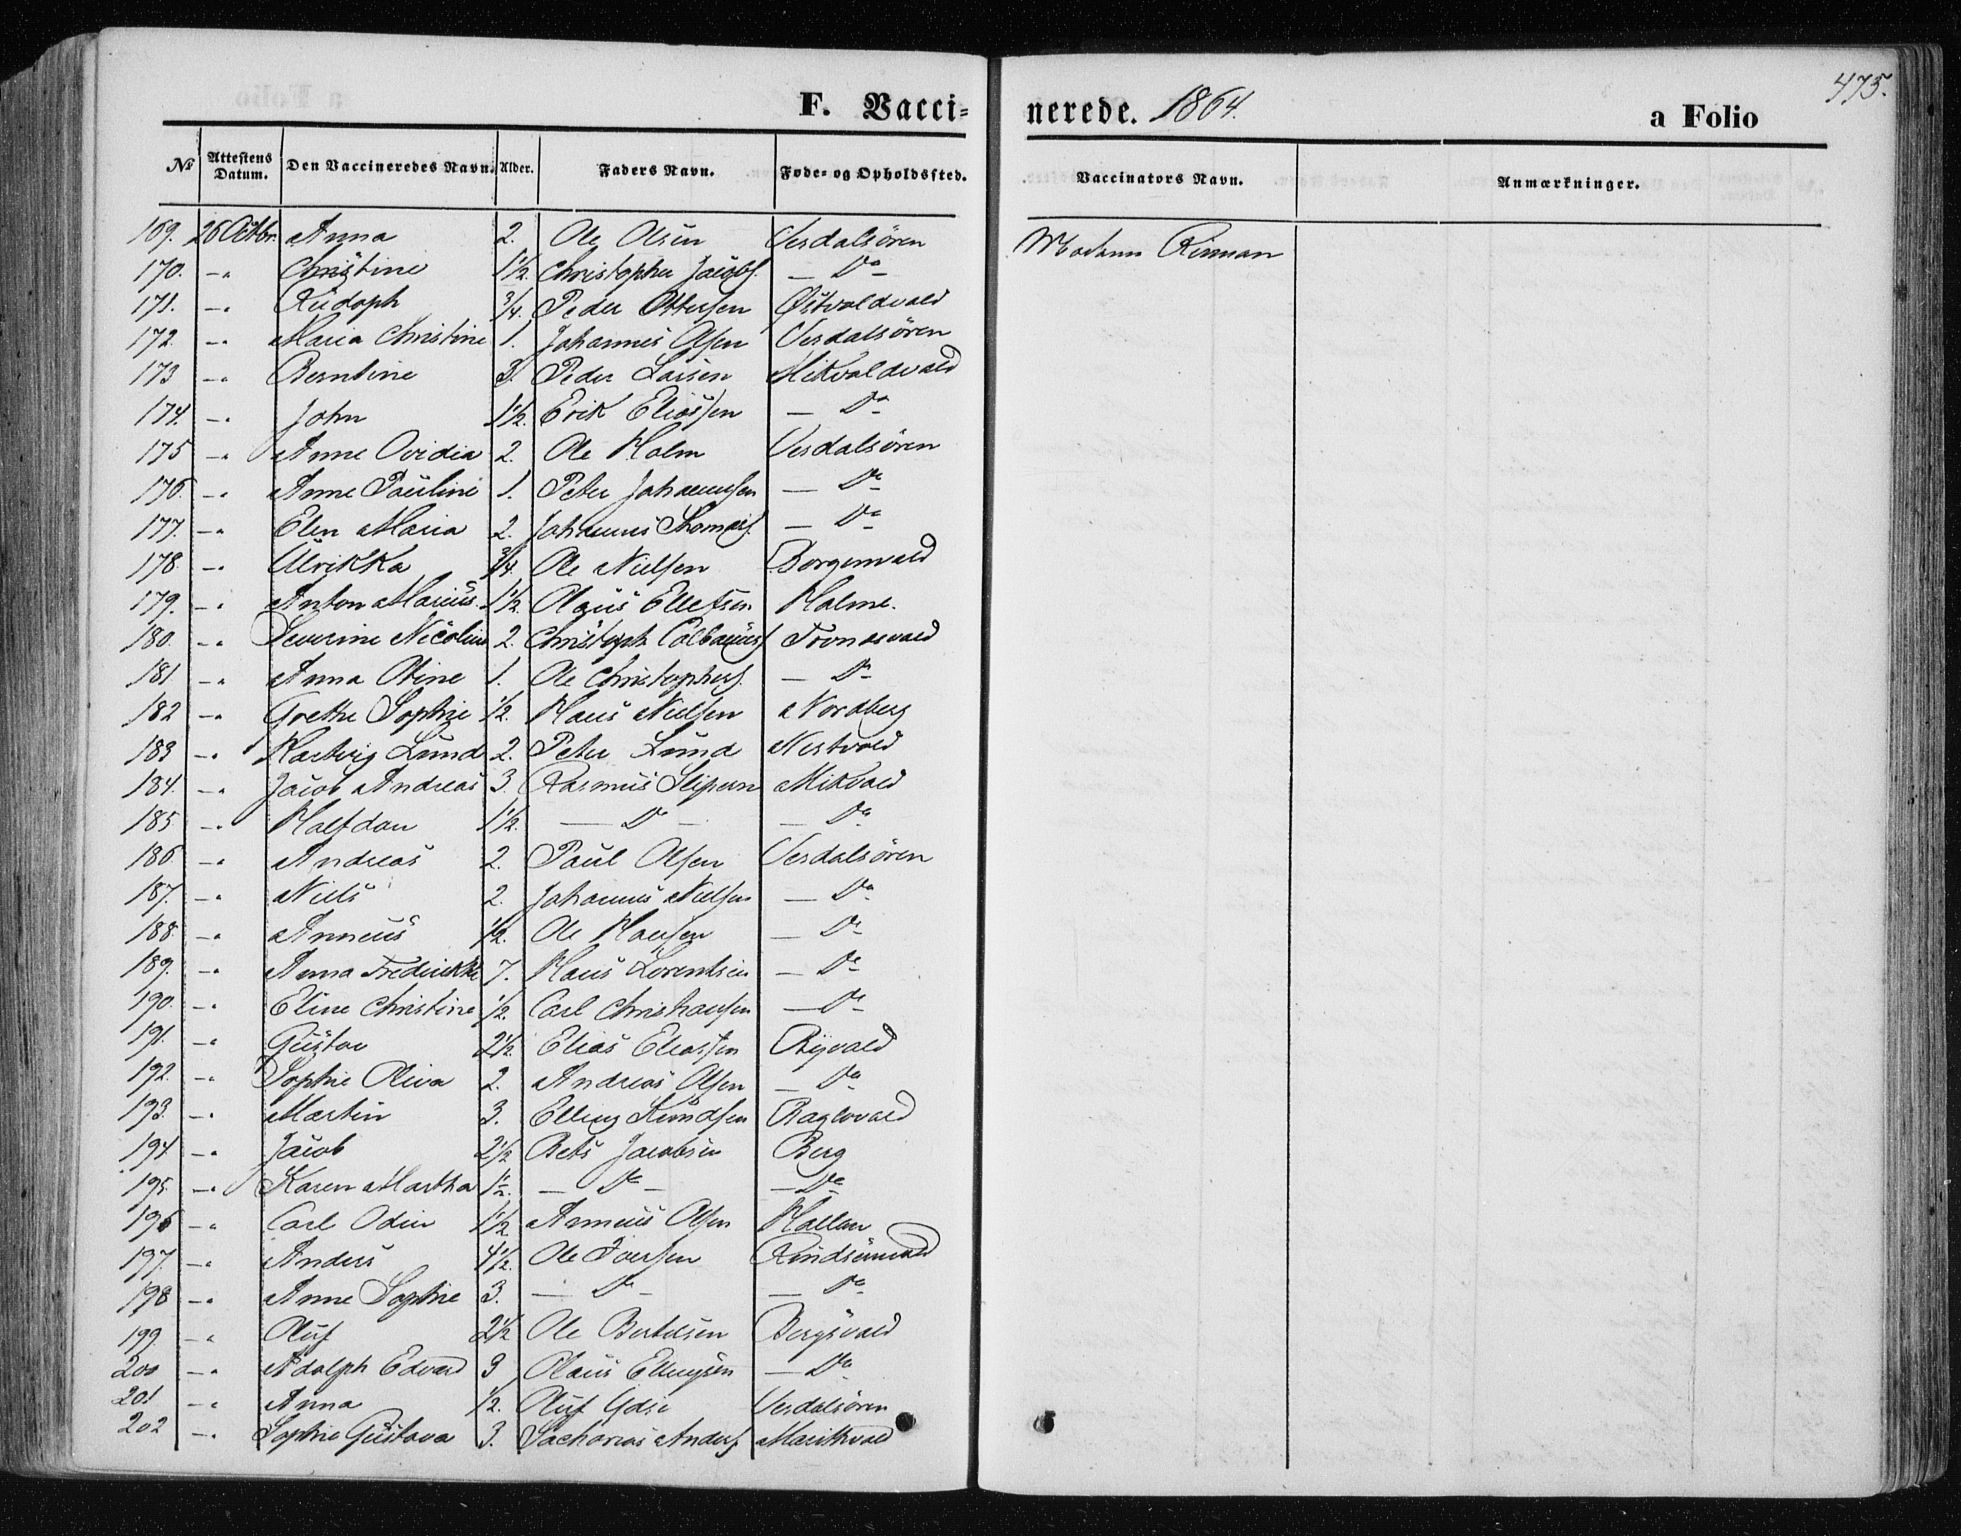 475.
F. Vacci= nerede. 1864. a Folio
№ Attestens Datum. Den Vaccineredes Navn. Alder. Faders Navn. Føde= og Opholdssted. Vaccinators Navn. Anmærkninger.
169. 26 Octbr. Anna 2. Ole Olsen Verdalsören Madam Rinnan
170. -" Christine 1½. Christopher Jacobs. - Do -
171. -" Rudoph ¾. Peder Ottersen Østvoldvald
172 -" Maria Christine 1. Johannes Olsen Verdalsören
173 -" Berntine 3. Peder Larsen Mikvoldvald
174. -" John 1½. Erik Eliassen - Do
175 -" Anne Ovidia 2. Ole Holm Verdalsören
176. -" Anne Pauline 1. Peter Johannesen - Do
177. -" Elen Maria 2. Johannes Thomass. - Do
178. -" Ulrikka ¾. Ole Nielsen Borgenvald
179. -" Anton Marius 1½ Olaus Ellefsen Holme.
180. -" Severine Nicoline 2. Christoph Colbanus
181 -" Anna Oline 1. Ole Christophers. - Do
182 -" Grethe Sophie ½. Hans Nielsen Nordberg
183 -" Hartvig Lund 2. Peter Lund Nestvold
184. -" Jacob Andreas 3. Rasmus Slipern Mikvald
185 -" Halfdan 1½. - Do - - Do
186. -" Andreas 2. Paul Olsen Verdalsören
187. -" Niels 2. Johannes Nielsen - Do
188. -" Anneus ½. Ole Hansen - Do
189. -" Anna Fredrikke 7. Hans Lorentsen - Do
190. -" Eline Christine ½. Carl Christiansen - Do
191. -" Gustav 2½. Elias Eliassen Ryvald
192. -" Sophie Oliva 2. Andreas Olsen - Do
193. -" Martin 3. Elling Knudsen Raglovald
194 -" Jacob 2½ Bets Jacobsen Berg
195. -" Karen Martha 1½. - Do - - Do
196 -" Carl Odin 1½ Anneus Olsen Hallan
197. -" Anders 4½. Ole Iversen Rindsemvald
198 -" Anne Sophie 3. - Do - - Do
199. -" Oluf 2½ Ole Bertelsen Bergsvald
200 -" Adolph Edvard 3 Olaus Ellingsen - Do
201 -" Anna ½. Oluf Ydse Verdalsören
202 -" Sophie Gustava 3. Sacharias Anders. Marithvold